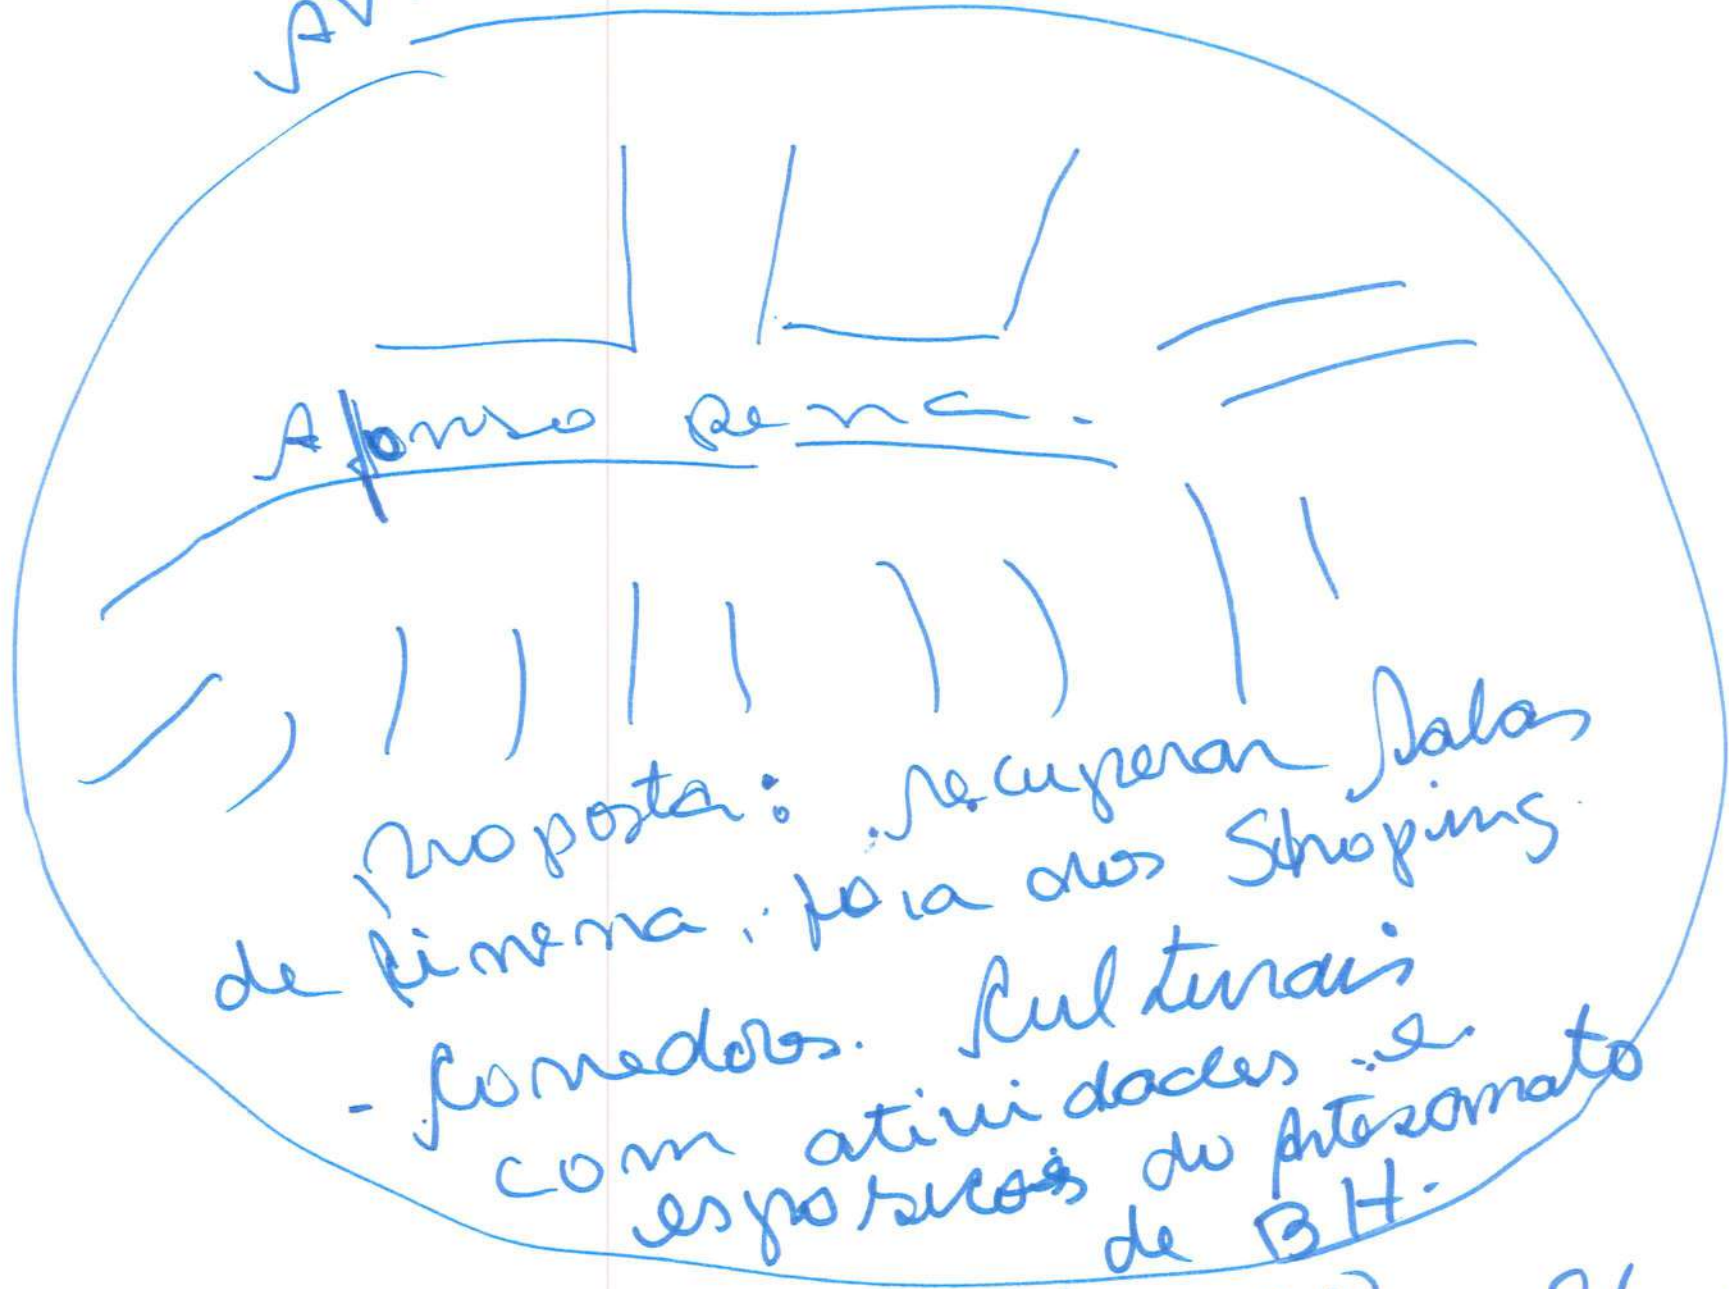 AV
Afonso Pena.
proposta: recuperar Salas
de Cinema, fora dos Shopings.
- Corredores. Culturais
com atividades e
esposicoes do Artesanato
de BH.